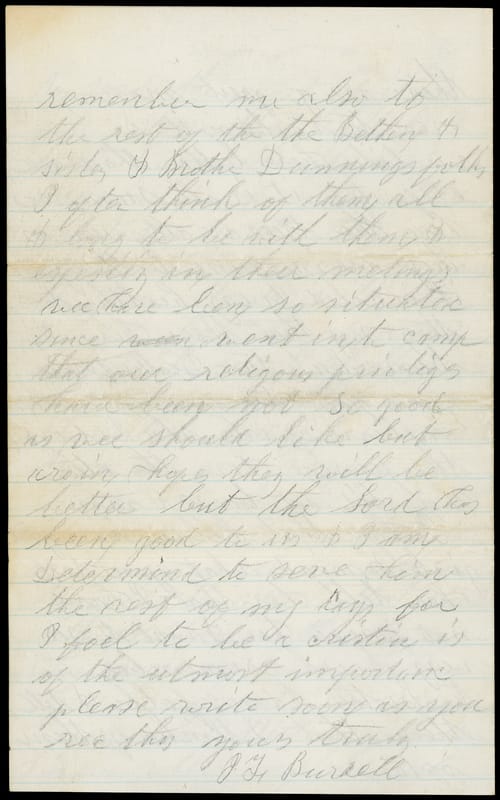 remember me also to
the rest of the the Bethen &
sister & Brothe Dunnings folks
I often think of them all
& long to be with them &
in their metings
wee have been so situated
since went in to camp
that our religous privliges
have been not so good
as wee should like but
hope they will be
better but the Lord has
been good to us & I am
Determind to serve him
the rest of my days for
I feel to be a cristin is
of the utmost importanc
please write soon as you
rec this yours truly
Burrell